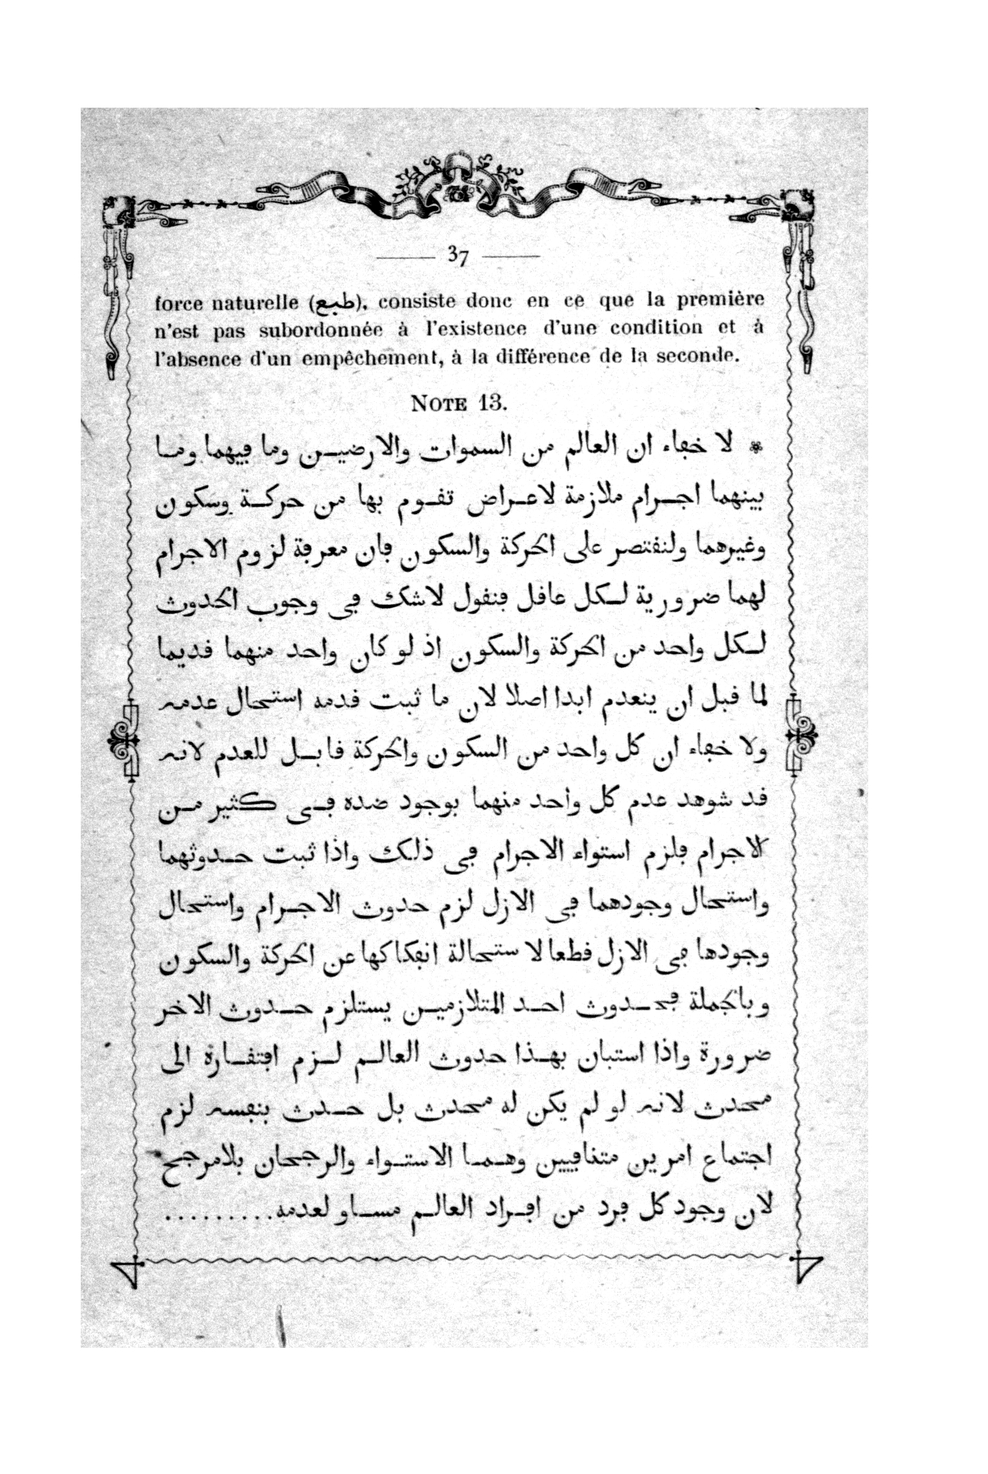 37
force naturelle (طبع), consiste donc en ce que la première
n'est pas subordonnée à l'existence d'une condition et à
l'absence d'un empêchement, à la différence de la seconde.
NOTE 13.
* لا خفاء ان العالم من السموات والارضيـن وما فيهما ومـا
بينهما اجـرام ملازمة لاعـراض تقـوم بها من حركـة وسكون
وغيرهما ولنقتصر على الحركة والسكون فان معرفة لزوم الاجرام
لهما ضرورية لـكل عاقل فنقول لاشك فى وجوب الحدوث
لـكل واحد من الحركة والسكون اذ لو كان واحد منهما قديما
لما قبل ان ينعدم ابدا اصلا لان ما ثبت قدمه استحال عدمه
ولا خفاء ان كل واحد من السكون والحركة قابـل للعدم لانه
قد شوهد عدم كل واحد منهما بوجود ضده فـى كثير مـن
الاجرام فلزم استواء الاجرام فى ذلك واذا ثبت حـدوثهما
واستحال وجودهما فى الازل لزم حدوث الاجـرام واستحال
وجودها فى الازل قطعا لاستحالة انفكاكها عن الحركة والسكون
وبالجملة فحـدوث احـد المتلازميـن يستلزم حـدوث الاخر
ضرورة واذا استبان بهـذا حدوث العالـم لـزم افتقـارة الى
محدث لانه لو لم يكن له محدث بل حـدث بنفسه لزم
اجتماع امرين متنافيين وهـمـا الاستـواء والرجحان بلامرجح
لان وجود كل فرد من افـراد العالـم مسـاو لعدمه.........